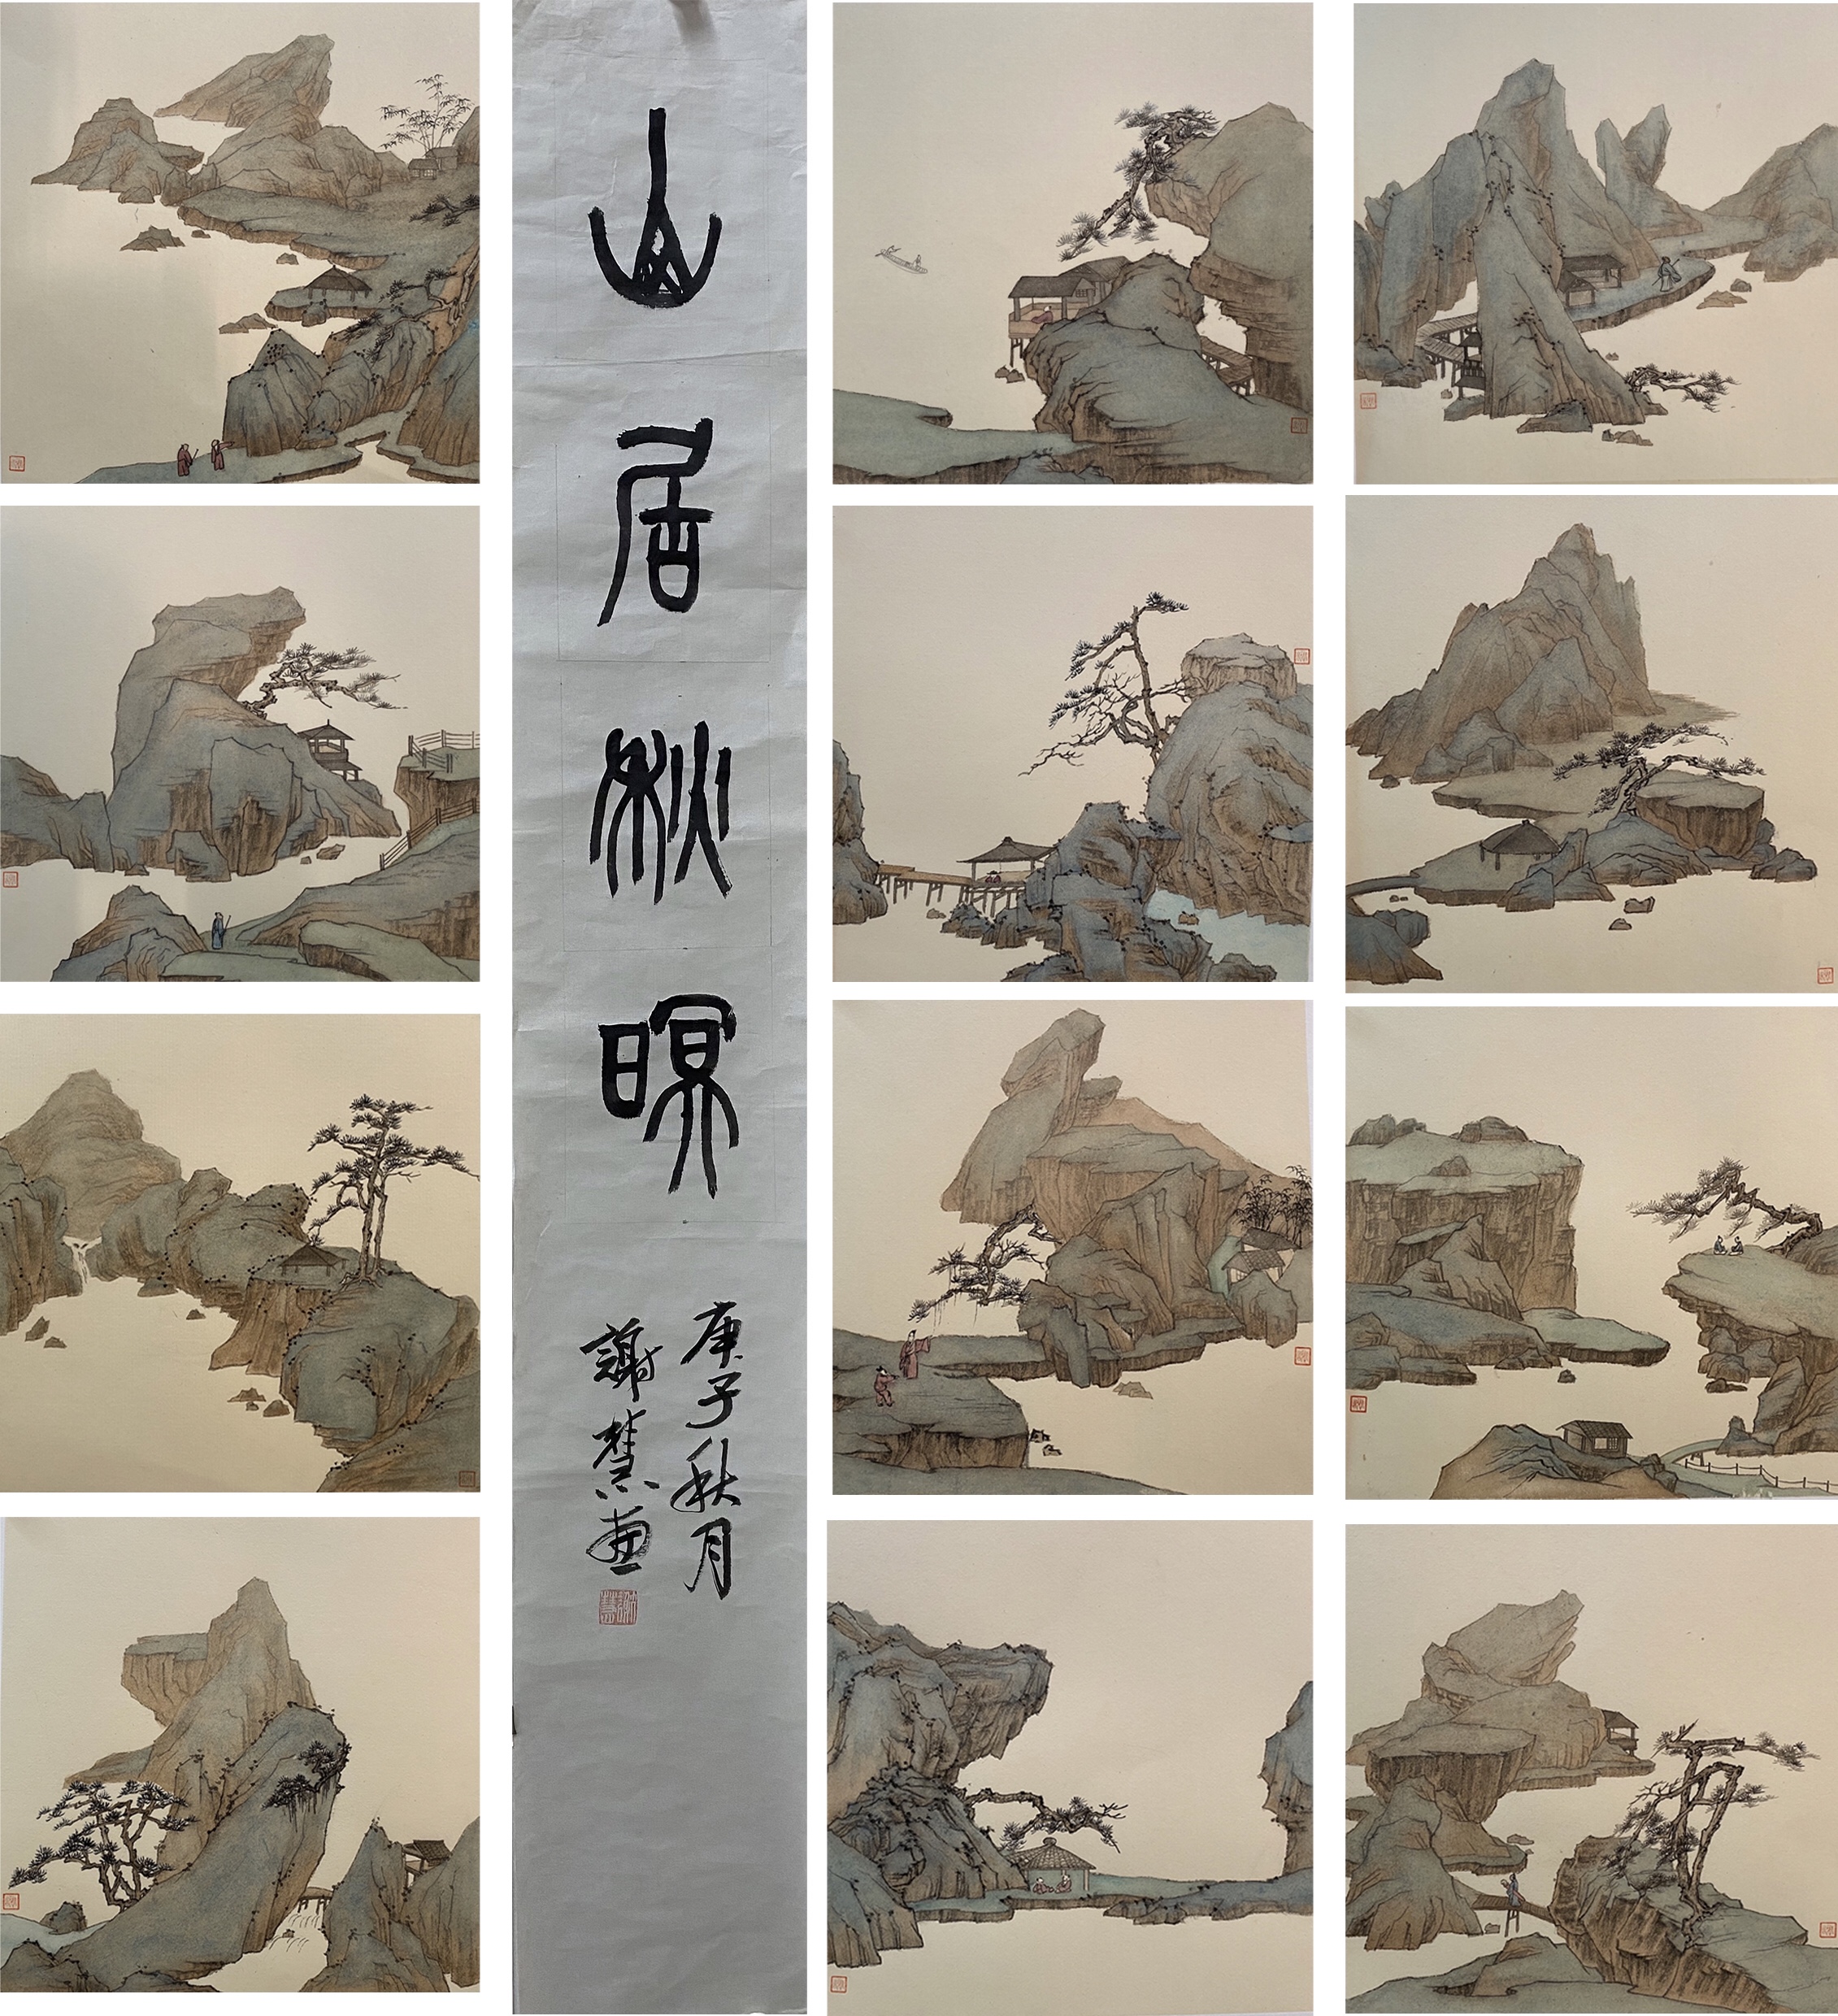 山居秋暝
庚子秋月
謝慧畫